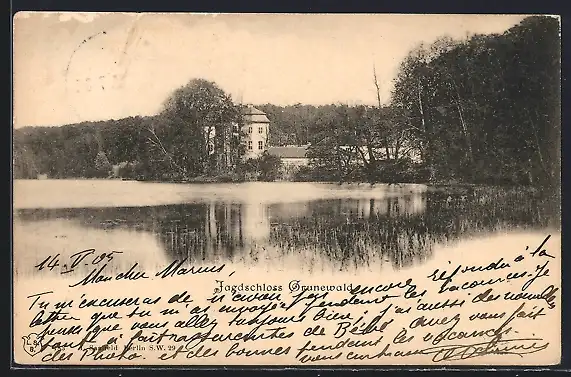 Jagdschloss Grunewald
14. V. 05
Mon cher Marius,
Tu m'excuseras de n'avoir pas encore répondu à la
lettre que tu m'as envoyé pendant les vacances. Je
pense que vous allez toujours bien, j'ai aussi des nouvelles
tant
fait rapporter de Bébé. avez vous fait
des Photo et des bonnes pendant les vacances.
Berlin S.W. 29